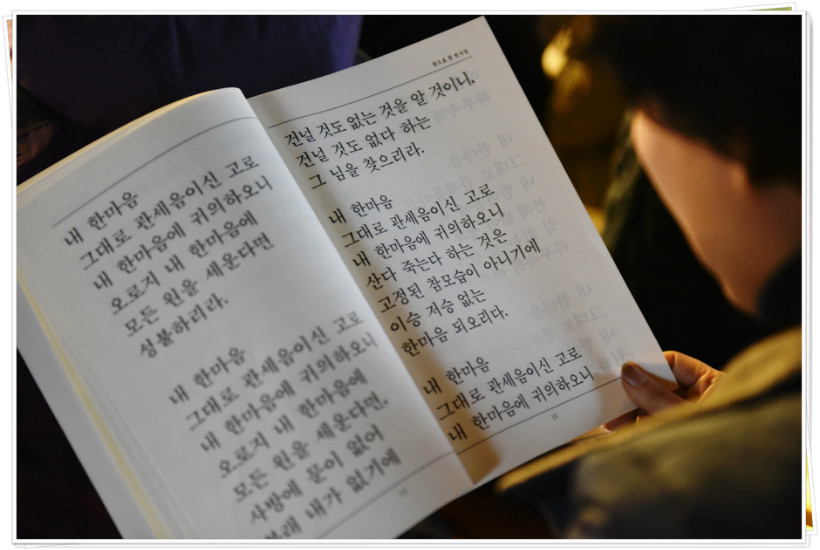 내 한마음
그대로 관세음이신 고로
내 한마음에 귀의하오니
오로지 내 한마음에
모든 원을 세운다면
성불하리라.
내 한마음
그대로 관세음이신 고로
내 한마음에 귀의하오니
오로지 내 한마음에
모든 원을 세운다면,
사방에 문이 없어
본래 내가 없기에
건널 것도 없는 것을 알 것이니,
건널 것도 없다 하는
그 님을 찾으리라.
내 한마음
그대로 관세음이신 고로
내 한마음에 귀의하오니
산다 죽는다 하는 것은
고정된 참모습이 아니기에
이승 저승 없는
한마음 되오리다.
내 한마음
그대로 관세음이신 고로
내 한마음에 귀의하오니